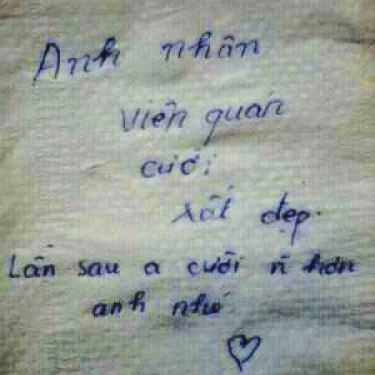 Anh nhân
viên quán
cười
rất đẹp.
Lần sau a cười n hơn
anh nhé